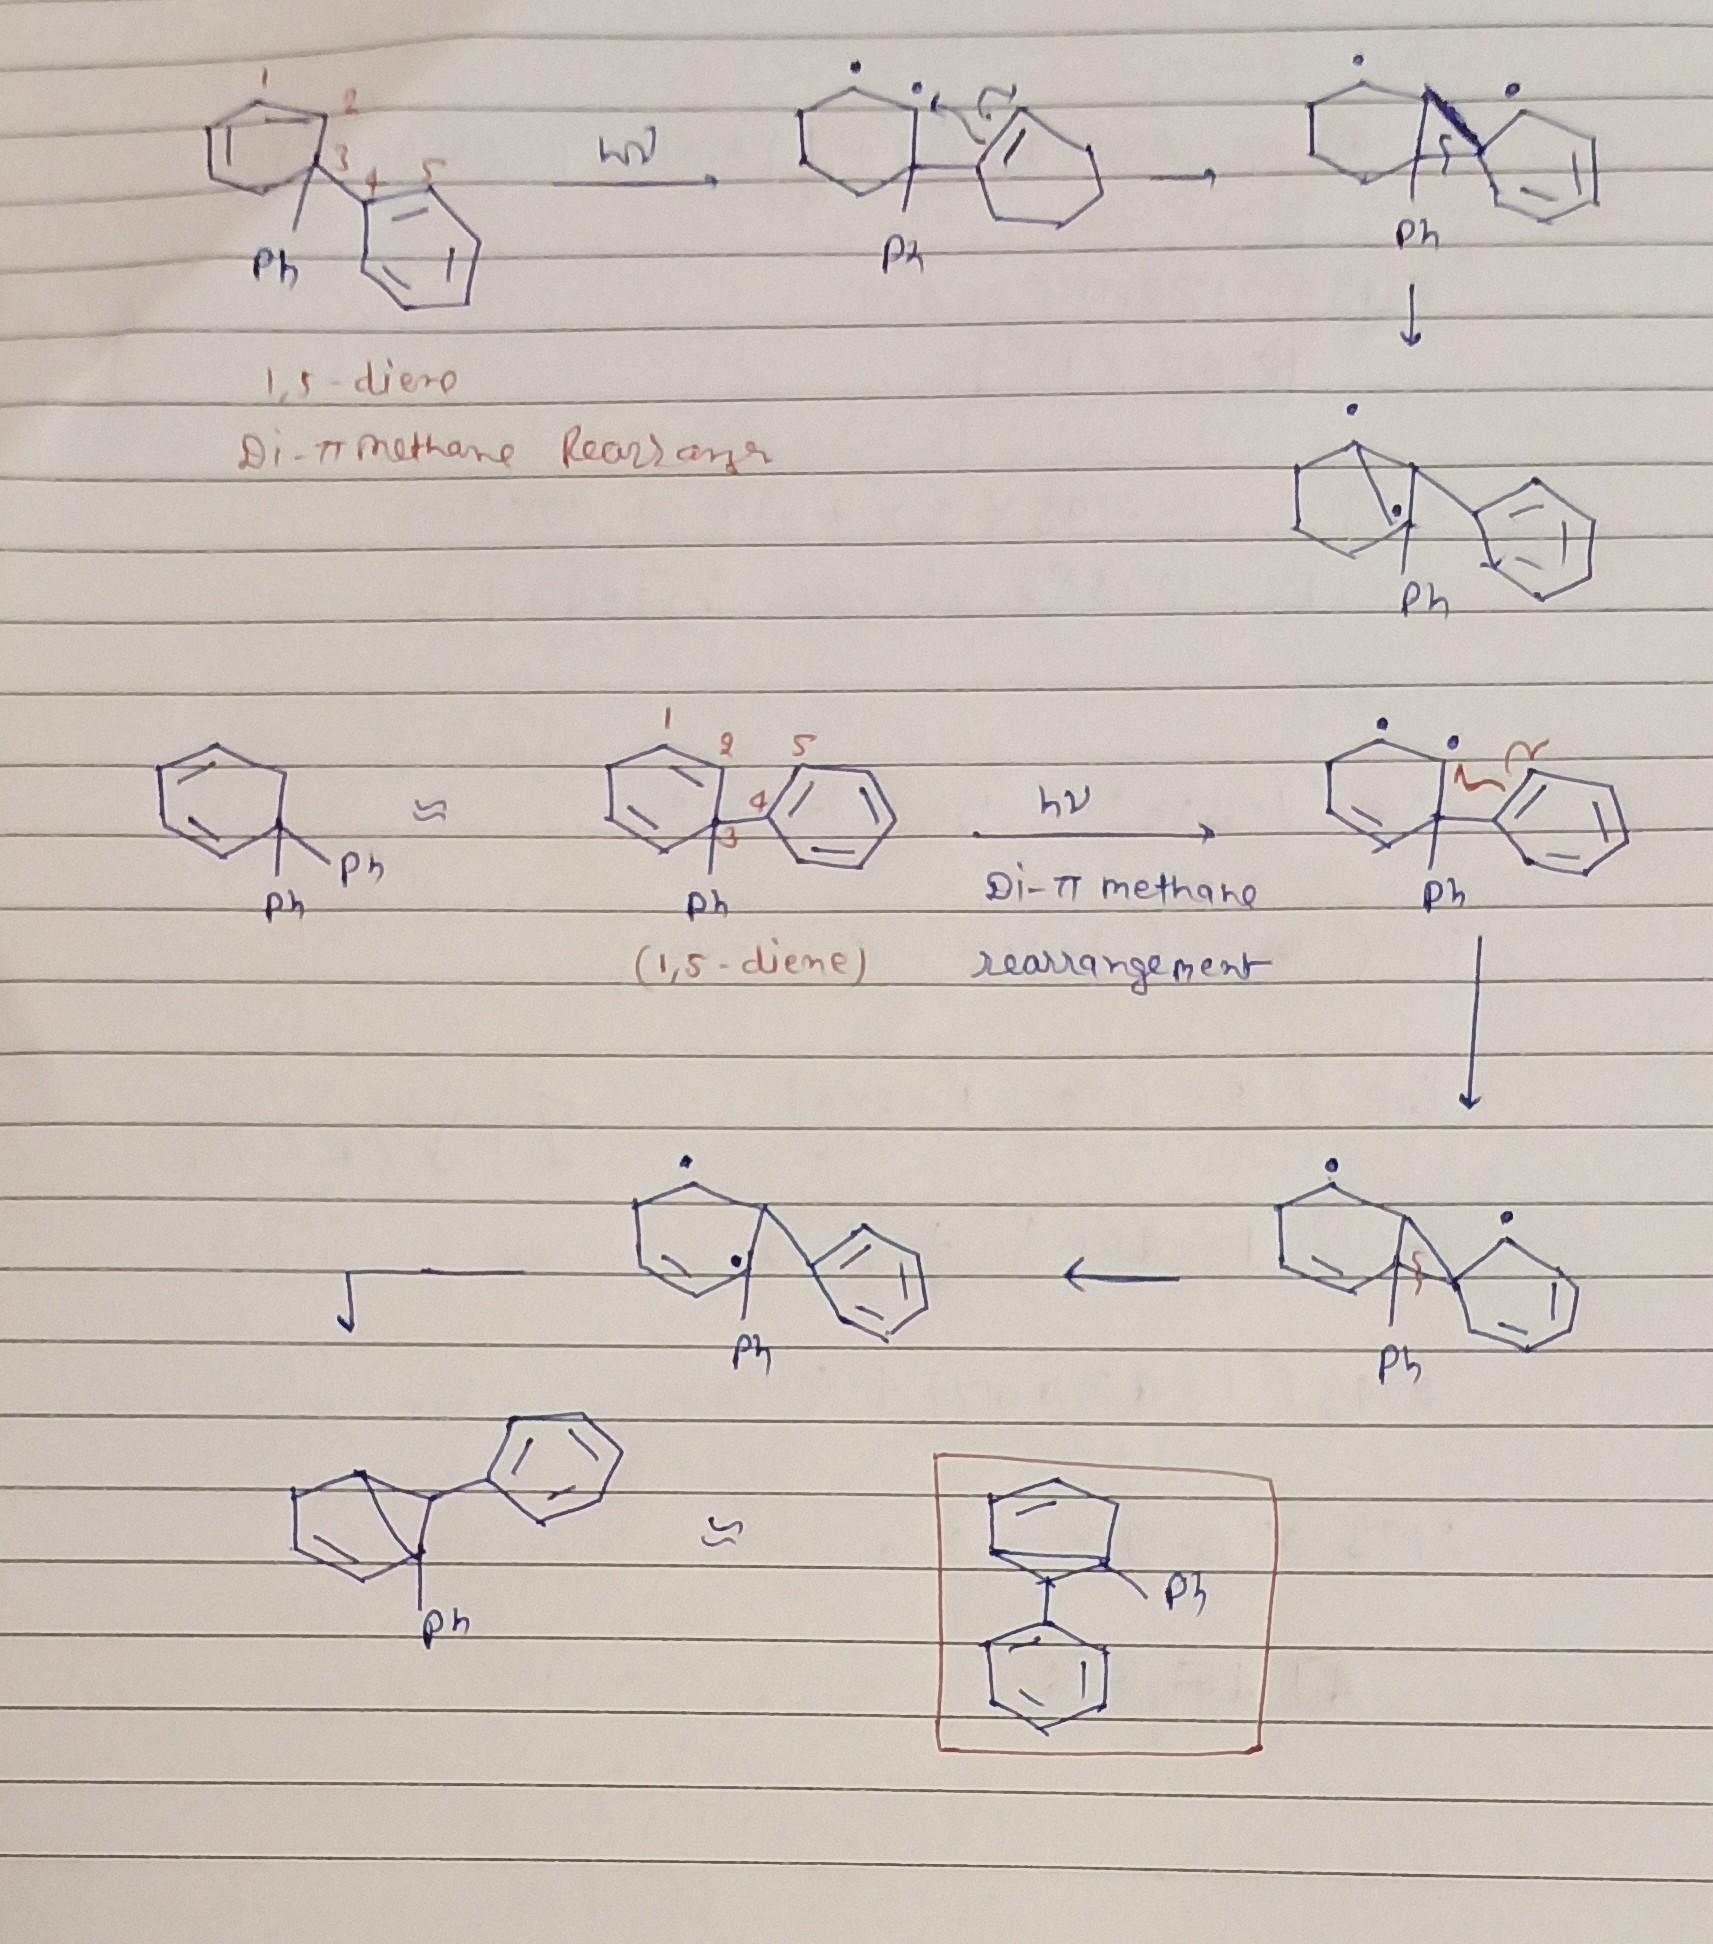 1 2
3 4 5
Ph
hν
Ph
Ph
1,5-diene
Di-π methane Rearrange
Ph
1 2 3 4 5
Ph
Ph
≈
Ph
(1,5-diene)
hν
Di-π methane
rearrangement
Ph
Ph
Ph
Ph
≈
Ph